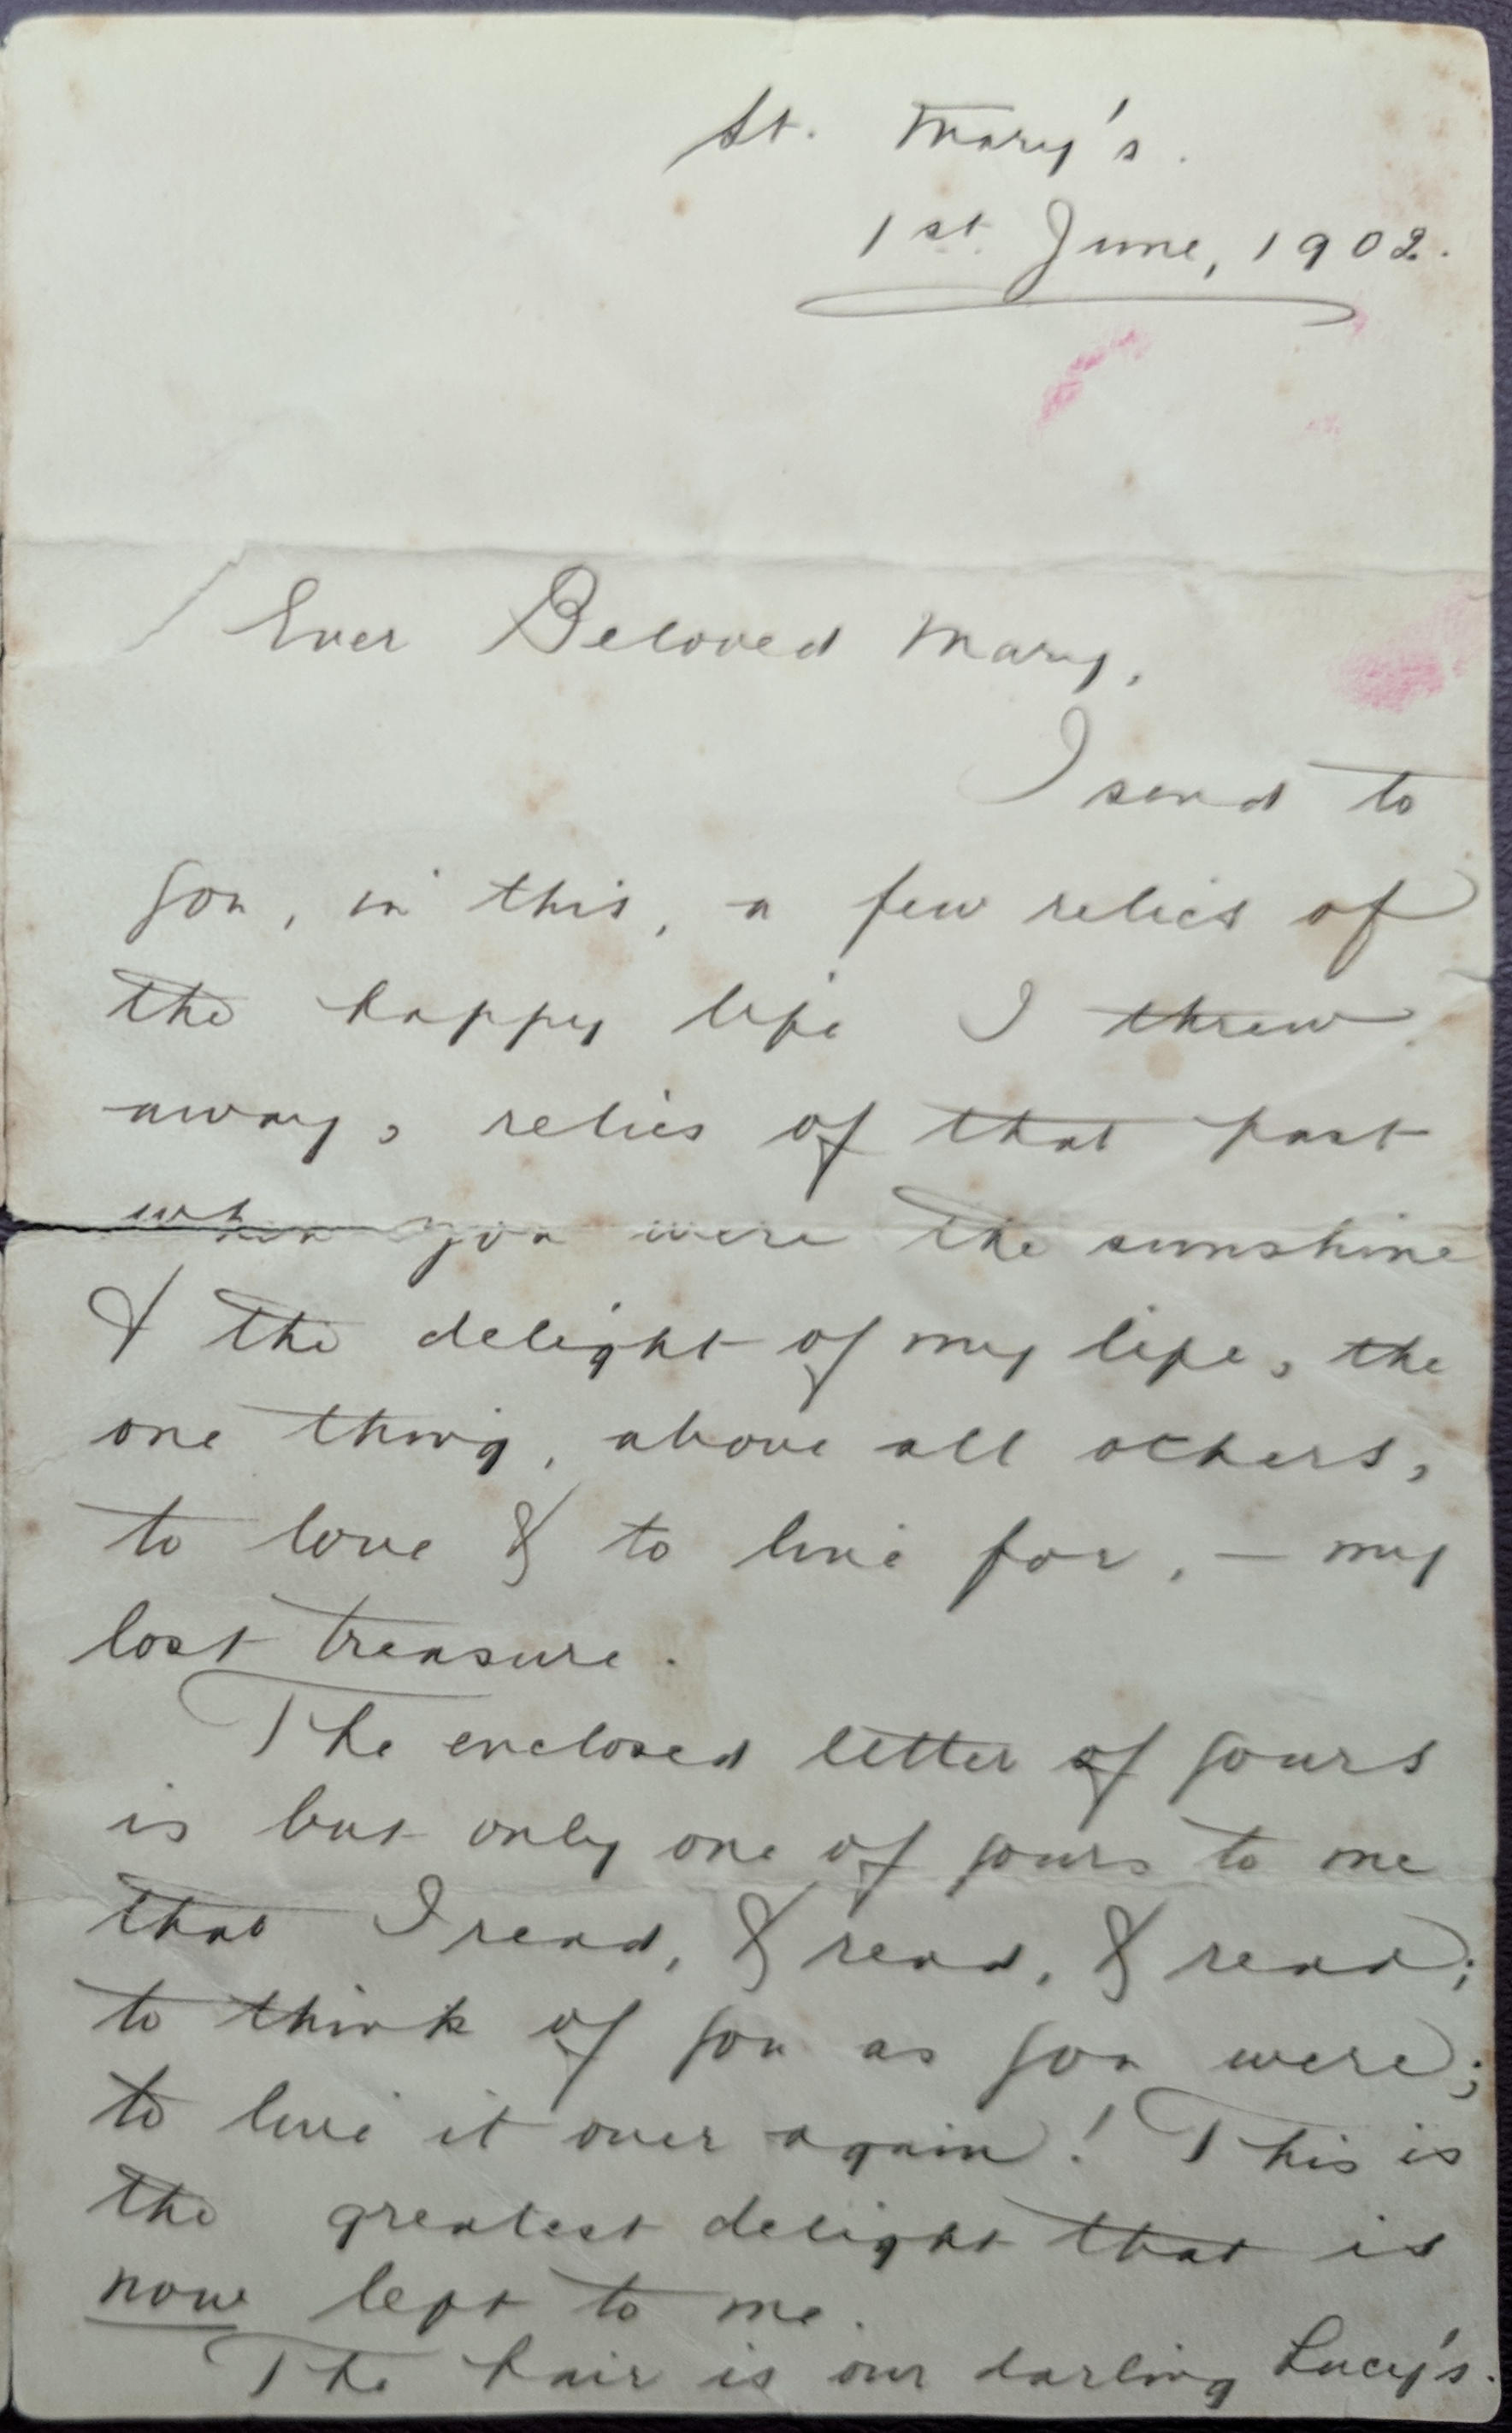 St. Mary's.
1st June, 1902.
Ever Beloved Mary,
I send to
you, in this, a few relics of
the happy life I threw
away, relics of that past
when you were the sunshine
& the delight of my life, the
one thing, above all others,
to love & to live for, — my
lost treasure.
The enclosed letter of yours
is but only one of yours to me
that I read, & read, & read;
to think of you as you were;
to live it over again! This is
the greatest delight that is
now left to me.
The hair is our darling Lucy's.